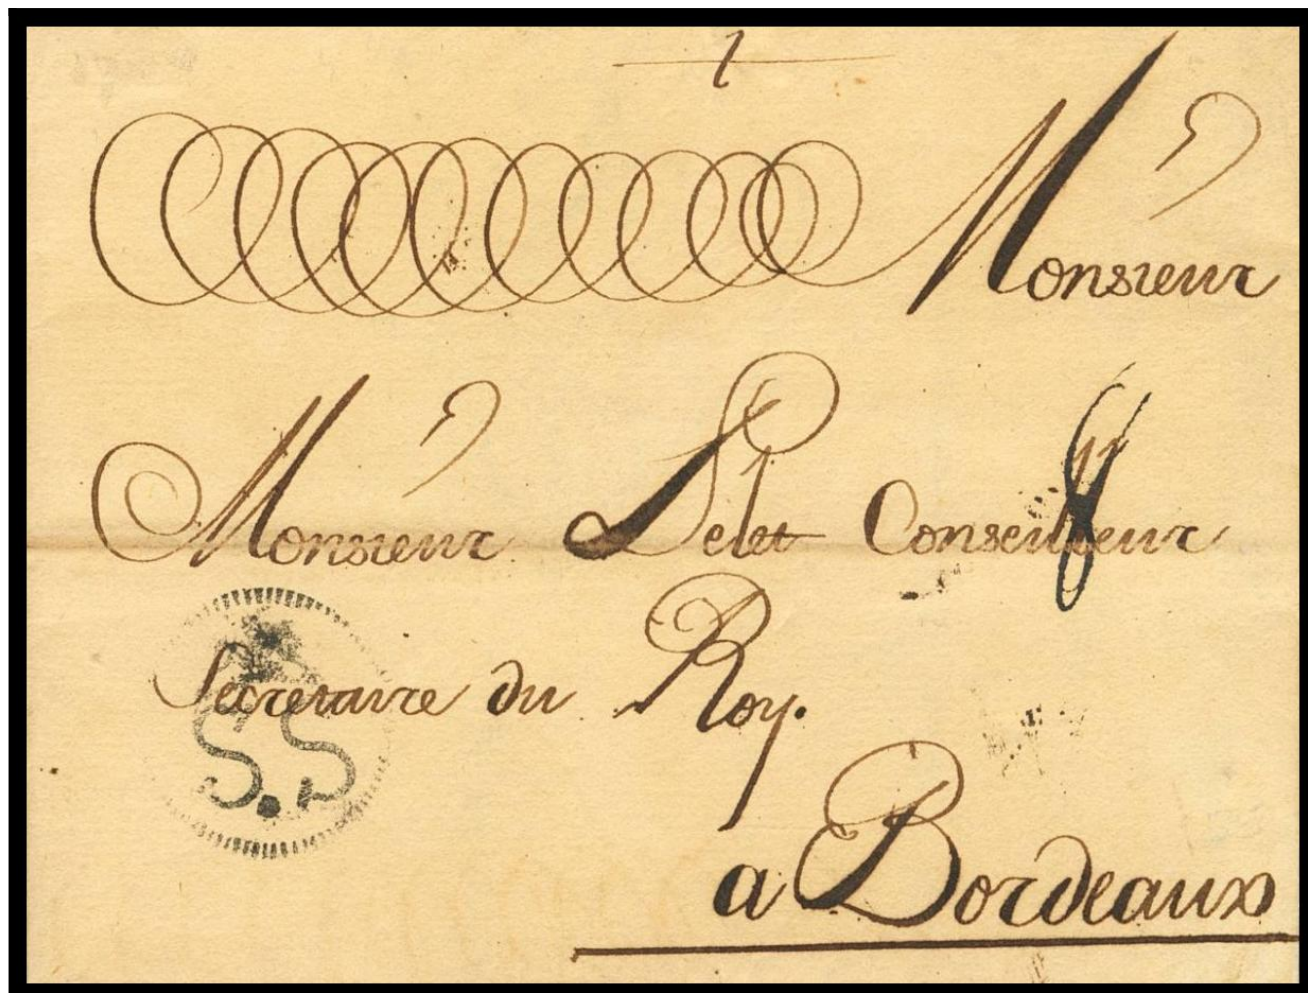 1
Monsieur
Monsieur Pelet Conseilleur
8
Secretaire du Roy.
S.S
a Bordeaux